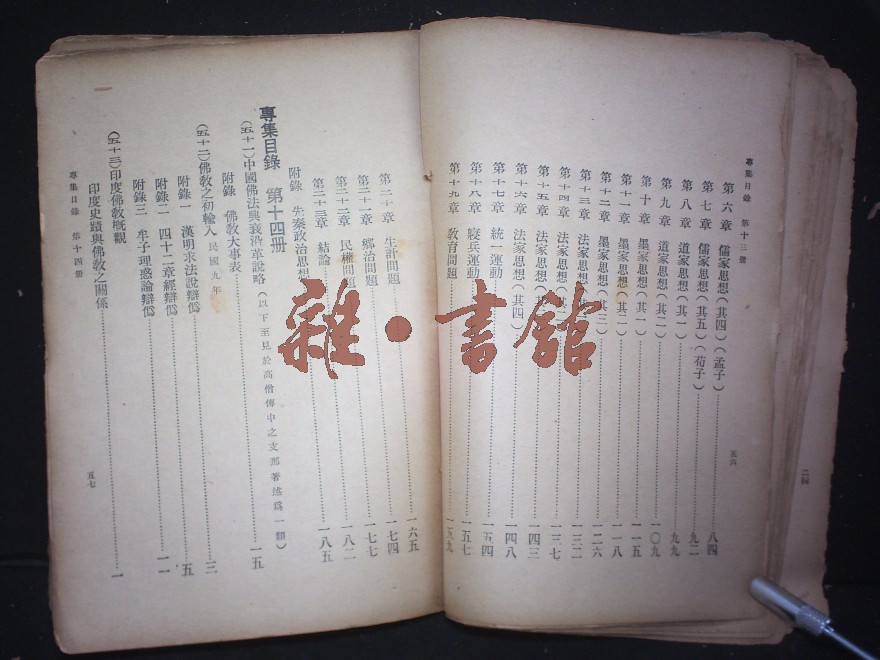 專集目錄 第十三冊
五六
第六章 儒家思想(其四)(孟子)……八四
第七章 儒家思想(其五)(荀子)……九二
第八章 道家思想(其一)……九九
第九章 道家思想(其二)……一〇九
第十章 墨家思想(其一)……一一五
第十一章 墨家思想(其二)……一一八
第十二章 墨家思想(其三)……一二六
第十三章 法家思想(其一)……一三二
第十四章 法家思想(其二)……一三七
第十五章 法家思想(其三)……一四三
第十六章 法家思想(其四)……一四八
第十七章 統一運動……一五四
第十八章 寢兵運動……一五七
第十九章 教育問題……一五九
第二十章 生計問題……一六五
第二十一章 鄉治問題……一七四
第二十二章 民權問題……一七七
第二十三章 結論……一八二
附錄 先秦政治思想……一八五
專集目錄 第十四冊
(五十一)中國佛法興衰沿革說略(以下至見於高僧傳中之支那著述爲一類)
附錄 佛教大事表……一五
(五十二)佛教之初輸入 民國九年……三
附錄一 漢明求法說辯僞……五
附錄二 四十二章經辯僞……一一
附錄三 牟子理惑論辯僞
(五十三)印度佛教概觀
印度史蹟與佛教之關係……一
專集目錄 第十四冊
五七
二四
雜·書館